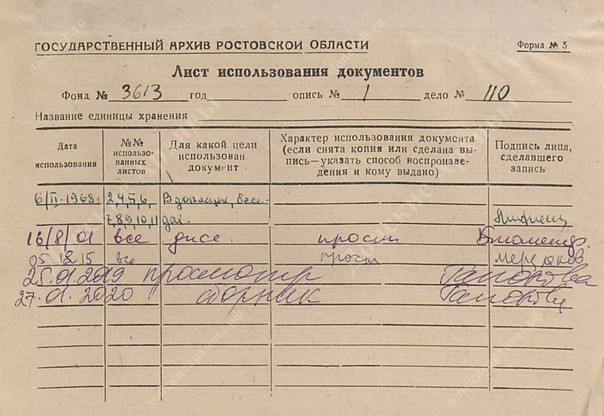 ГОСУДАРСТВЕННЫЙ АРХИВ РОСТОВСКОЙ ОБЛАСТИ
Форма № 5
Лист использования документов
Фонд № 3613 год опись № 1 дело № 110
Название единицы хранения
Дата использования
№№ использованных листов
Для какой цели использован документ
Характер использования документа (если снята копия или сделана выпись—указать способ воспроизведения и кому выдано)
Подпись лица, сделавшего запись
6/II-1968г. 2,4,5,6, В докладах, бесе-
7,8,9,10,11 дах.
16/8/01 все дисс. просм
все просм
25.01.2019 просмотр
27.01.2020 сборник